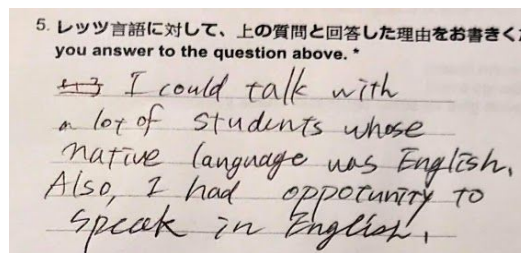 5. レッツ言語に対して、上の質問と回答した理由をお書きく
you answer to the question above. *
I could talk with
a lot of students whose
native language was English,
Also, I had oppotunity to
speak in English,